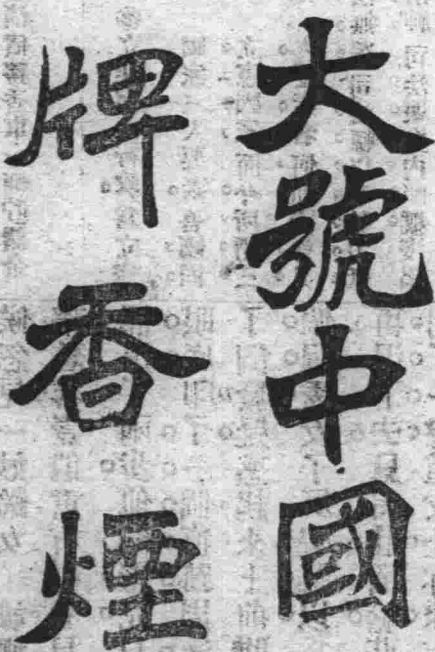 大號中國
牌香煙